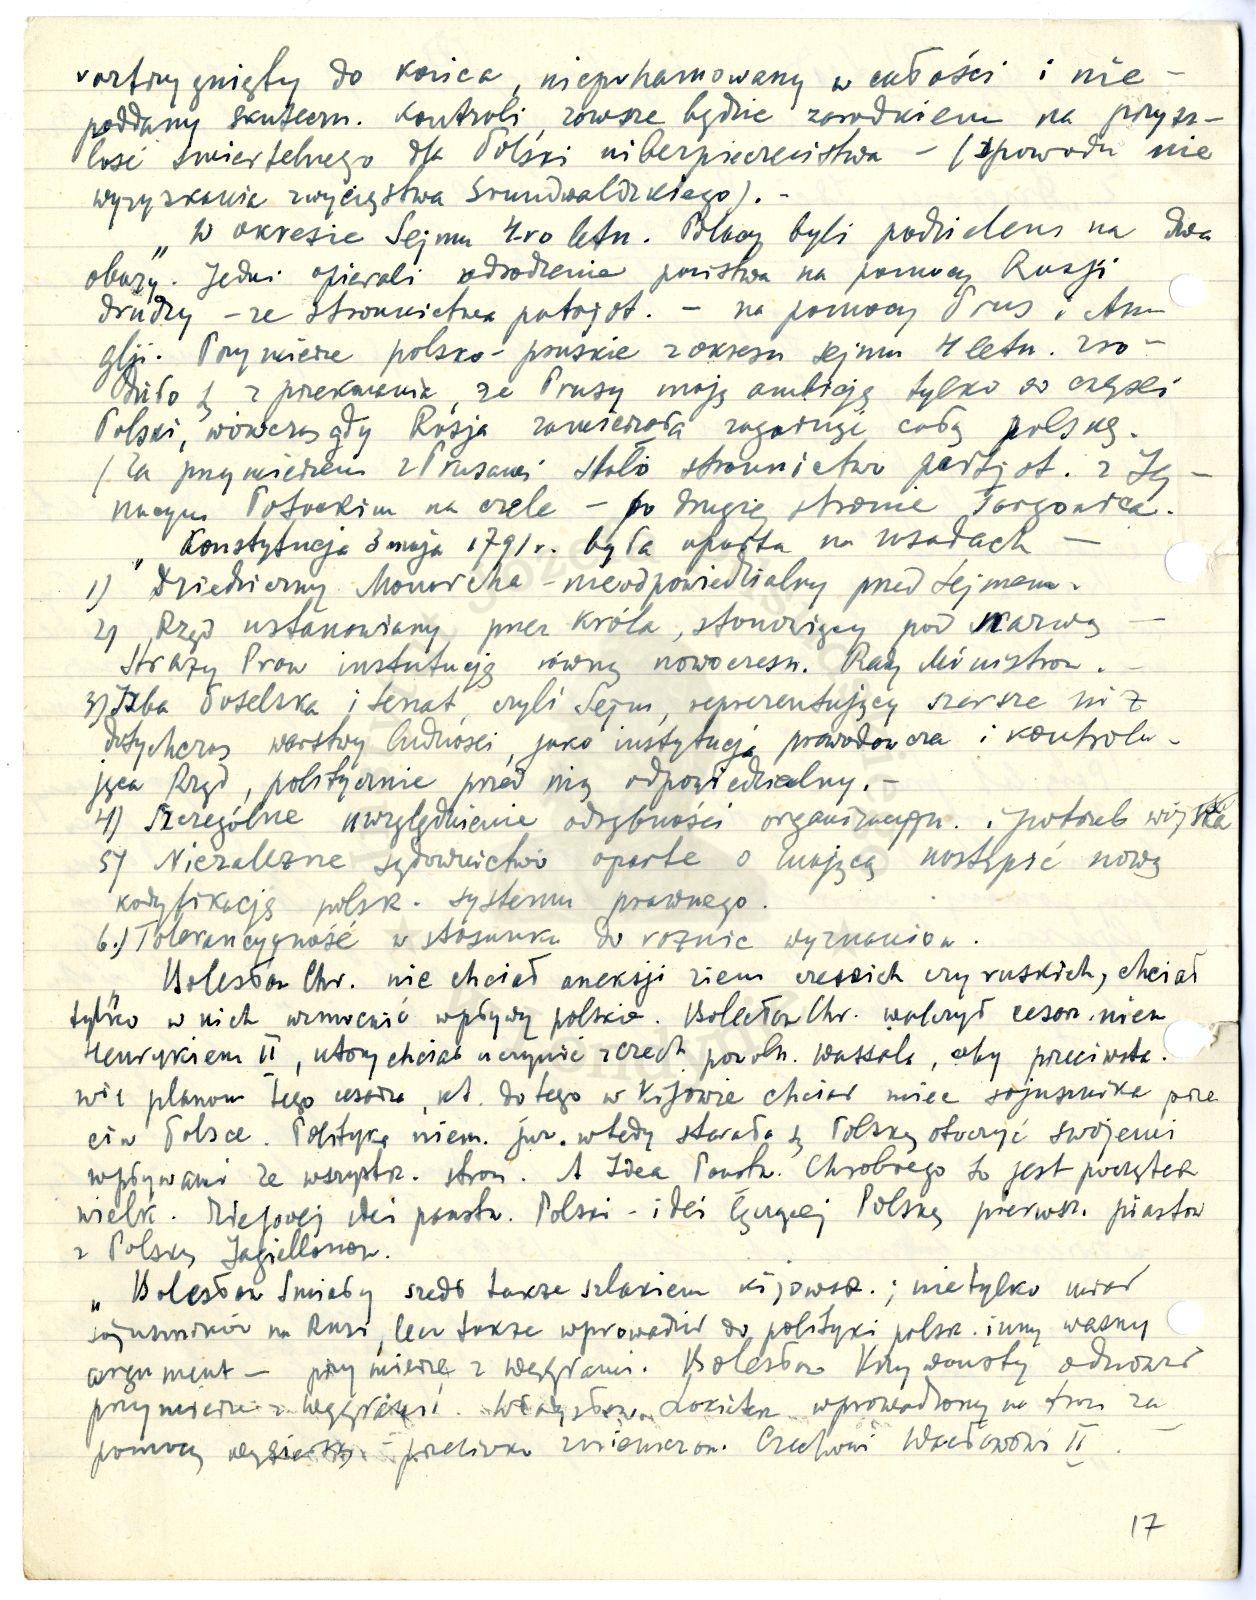 rozstrzygnięty do końca, niepohamowany w całości i nie-
poddany skuteczn. kontroli, zawsze będzie zarodkiem na przysz-
łość śmiertelnego dla Polski niberpieczeństwa – (spowodu nie
wyzyskania zwycięstwa Grundwaldzkiego). –
„ W okresie Sejmu 4-ro letn. Polacy byli podzieleni na dwa
obozy. Jedni opierali odrodzenie państwa na pomocy Rosji
drudzy – ze stronnictwa patrjot. – na pomocy Prus i An-
glji. Przymierze polsko-pruskie z okresu sejmu 4 letn. zro-
dziło się z przekonania, że Prusy mają ambicję tylko do części
Polski, wówczas gdy Rosja zamierzała zagarnąć całą polskę.
(Za przymierzem z Prusami stało stronnictwo patrjot. z Ig-
nacym Potockim na czele – po drugiej stronie Targowica.
„ Konstytucja 3 maja 1791 r. była oparta na zasadach –
1) Dziedziczny Monarcha – nieodpowiedzialny przed Sejmem.
2) Rząd ustanowiany przez Króla, stanowiący pod nazwą –
Straży Praw instytucję równą nowoczesn. Rady Ministrów. –
3) Izba Poselska i Senat, czyli Sejm, reprezentujący szersze niż
dotychczas warstwy ludności, jako instytucja prawodawcza i kontrolu-
jąca Rząd, politycznie przed nią odpowiedzialny. –
4) Szczególne uwzględnienie odrębności organizacyjn. i potrzeb wojska
5) Niezależne sądownictwo oparte o mającą nastąpić nową
kodyfikację polsk. systemu prawnego.
6.) Tolerancyjność w stosunku do różnic wyznaniow.
„ Bolesław Chr. nie chciał aneksji ziem czeskich czy ruskich, chciał
tylko w nich wzmocnić wpływy polskie. Bolesław Chr. walczył cesarz. niem
Henrykiem II, który chciał uczynić z Czech powoln. wassala, aby przeciwsta.
wić planom tego cesarza, kt. do tego w Kijowie chciał mieć sojusznika prze
ciw Polsce. Polityka niem. już wtedy starała się Polskę otoczyć swojemi
wpływami ze wszystk. stron. A Idea Państw. Chrobrego to jest początek
wielk. dziejowej idei państw. Polski – idei łączącej Polskę pierwsz. piastów
z Polską Jagiellonów.
„ Bolesław Śmiały szedł także szlakiem kijowsk.; nietylko miał
sojuszników na Rusi, lecz także wprowadził do polityki polsk. inny ważny
argument – przymierze z Węgrami. Bolesław Krzywousty odnowił
przymierze z Węgrami. Władysław Łokietek wprowadzony na tron za
pomocą węgierską – przeciwko zniemczon. Czechowi Wacławowi II.
17